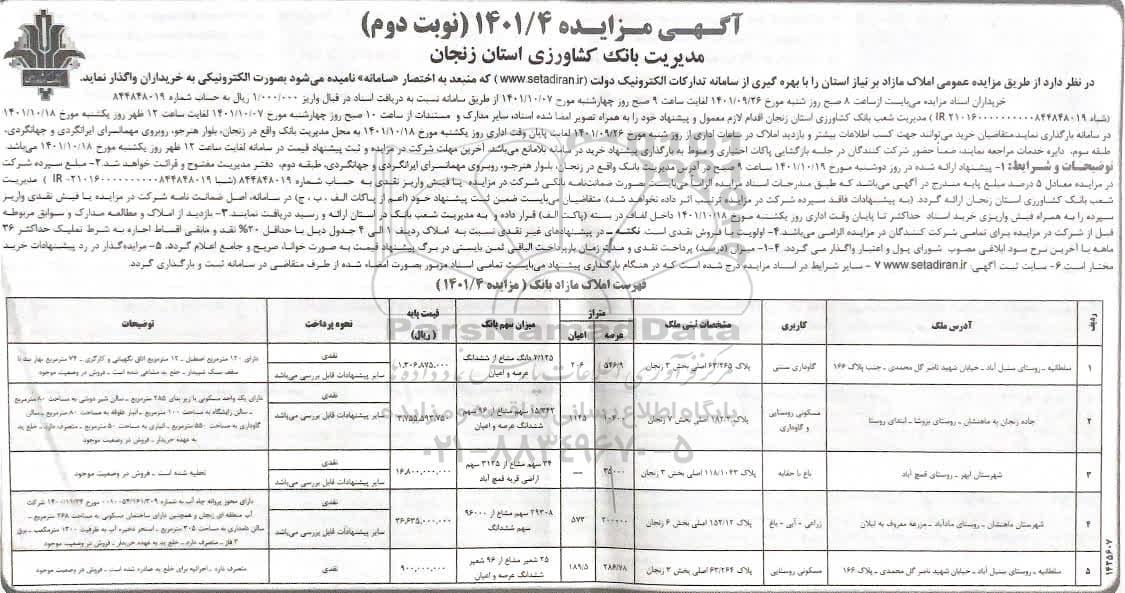 آگهی مزایده ۱۴۰۱/۴ (نوبت دوم)
مدیریت بانک کشاورزی استان زنجان
در نظر دارد از طریق مزایده عمومی املاک مازاد بر نیاز استان را با بهره گیری از سامانه تدارکات الکترونیک دولت (www.setadiran.ir) که منبعد به اختصار «سامانه» نامیده می‌شود بصورت الکترونیکی به خریداران واگذار نماید.
خریداران اسناد مزایده می‌بایست ازساعت ۸ صبح روز شنبه مورخ ۱۴۰۱/۰۹/۲۶ لغایت ساعت ۹ صبح روز چهارشنبه مورخ ۱۴۰۱/۱۰/۰۷ از طریق سامانه نسبت به دریافت اسناد در قبال واریز ۱/۰۰۰/۰۰۰ ریال به حساب شماره ۸۴۴۸۴۸۰۱۹
مدیریت شعب بانک کشاورزی استان زنجان اقدام لازم معمول و پیشنهاد خود را به همراه تصویر امضا شده اسناد، سایر مدارک و مستندات از ساعت ۱۰ صبح روز چهارشنبه مورخ ۱۴۰۱/۱۰/۰۷ لغایت ساعت ۱۲ ظهر روز یکشنبه مورخ ۱۴۰۱/۱۰/۱۸
در سامانه بارگذاری نمایند.متقاضیان خرید می‌توانند جهت کسب اطلاعات بیشتر و بازدید املاک در ساعات اداری از روز شنبه مورخ ۱۴۰۱/۰۹/۲۶ لغایت پایان وقت اداری روز یکشنبه مورخ ۱۴۰۱/۱۰/۱۸ به محل مدیریت بانک واقع در زنجان، بلوار هنرجو، روبروی مهمانسرای ایرانگردی و جهانگردی،
طبقه سوم، دایره خدمات مراجعه نمایند، ضمناً حضور شرکت کنندگان در جلسه بازگشایی پاکات اختیاری و منوط به بارگذاری پیشنهاد خرید در سامانه بلامانع می‌باشد. آخرین مهلت شرکت در مزایده و ثبت پیشنهاد قیمت در سامانه لغایت ساعت ۱۲ ظهر روز یکشنبه مورخ ۱۴۰۱/۱۰/۱۸ می‌باشد
توضیحات و شرایط: ۱- پیشنهاد ارائه شده در روز دوشنبه مورخ ۱۴۰۱/۱۰/۱۹ ساعت ۹ صبح در آدرس مدیریت بانک واقع در زنجان، بلوار هنرجو، روبروی مهمانسرای ایرانگردی و جهانگردی، طبقه دوم، دفتر مدیریت مفتوح و قرائت خواهد شد. ۲- مبلغ سپرده شرکت
در مزایده معادل ۵ درصد مبلغ پایه مندرج در آگهی می‌باشد که طبق مندرجات اسناد مزایده الزاماً می‌بایست بصورت ضمانت‌نامه بانکی شرکت در مزایده یا فیش واریز نقدی به حساب شماره ۸۴۴۸۴۸۰۱۹ مدیریت
شعب بانک کشاورزی استان زنجان ارائه گردد. (به پیشنهادات فاقد سپرده شرکت در مزایده ترتیب اثر داده نخواهد شد) متقاضیان می‌بایست ضمن ثبت پیشنهاد خود (اعم از پاکات الف ، ب ، ج) در سامانه، اصل ضمانت نامه شرکت در مزایده یا فیش نقدی واریز
سپرده را به همراه فیش واریزی خرید اسناد حداکثر تا پایان وقت اداری روز یکشنبه مورخ ۱۴۰۱/۱۰/۱۸ داخل لفاف در بسته (پاکت الف) قرار داده و به مدیریت شعب بانک در استان ارائه و رسید دریافت نمایند. ۳- بازدید از املاک و مطالعه مدارک و سوابق مربوطه
قبل از شرکت در مزایده برای تمامی شرکت کنندگان در مزایده الزامی می‌باشد. ۴- اولویت با فروش نقدی است. نکته - در پیشنهادهای غیر نقدی نسبت به املاک ردیف ۱ الی ۴ جدول ذیل با حداقل ۲۰٪ نقد و مابقی اقساط اجاره به شرط تملیک حداکثر ۳۶
ماهه با آخرین نرخ سود ابلاغی مصوب شورای پول و اعتبار واگذار می گردد. ۱-۴- میزان (درصد) پرداخت نقدی و مدت زمان بازپرداخت الباقی ثمن بایستی در برگ پیشنهاد قیمت به صورت خوانا، صریح و جامع اعلام گردد. ۵- مزایده‌گذار در رد پیشنهادات خرید
مختار است ۶- سایت ثبت آگهی: www.setadiran.ir ۷- سایر شرایط در اسناد مزایده درج شده است که در هنگام بارگذاری پیشنهاد می‌بایست تمامی اسناد مزبور بصورت امضاء شده از طرف متقاضی در سامانه ثبت و بارگذاری گردد.
فهرست املاک مازاد بانک (مزایده ۱۴۰۱/۴)
ردیف آدرس ملک کاربری مشخصات ثبتی ملک متراژ عرصه اعیان میزان سهم بانک قیمت پایه (ریال) نحوه پرداخت توضیحات
۱ سلطانیه - روستای سنبل آباد - خیابان شهید ناصر گل محمدی - جنب پلاک ۱۶۶ گاوداری سنتی پلاک ۶۳/۲۶۵ اصلی بخش ۳ زنجان ۵۴۶/۹ ۲۰۶ ۲/۱۲۵ دانگ مشاع از ششدانگ عرصه و اعیان ۱,۳۰۶,۸۷۵,۰۰۰ نقدی
سایر پیشنهادات قابل بررسی می‌باشد
دارای ۱۲۰ مترمربع اصطبل - ۱۲ مترمربع اتاق نگهبانی و کارگری - ۷۴ مترمربع بهار بند با
سقف سبک شیبدار - خلع ید مشاعی شده است - فروش در وضعیت موجود
۲ جاده زنجان به ماهنشان - روستای بزوشا - ابتدای روستا مسکونی روستایی و گاوداری پلاک ۱۸۲/۲ اصلی بخش ۷ زنجان ۱۰۶۰۰ ۱۱۴۵ ۱۵/۳۴۲ سهم مشاع از ۹۶ سهم ششدانگ عرصه و اعیان ۳,۷۵۵,۵۹۳,۷۵۰ نقدی
سایر پیشنهادات قابل بررسی می‌باشد
دارای یک واحد مسکونی با زیر بنای ۲۸۵ مترمربع - سالن شیر دوشی به مساحت ۸۰ مترمربع
- سالن زایشگاه به مساحت ۱۰۰ مترمربع - انبار علوفه به مساحت ۸۰ مترمربع - سالن
گاوداری به مساحت ۵۵۰ مترمربع - انباری به مساحت ۵۰ مترمربع - متصرف دارد - خلع ید
به عهده خریدار - فروش در وضعیت موجود
۳ شهرستان ابهر - روستای قمچ آباد باغ با حقابه پلاک ۱۱۸/۱۰۴۳ اصلی بخش ۳ زنجان ۳۵۰۰۰ --- ۳۴ سهم مشاع از ۳۱۳۵ سهم اراضی قریه قمچ آباد ۱۶,۸۰۰,۰۰۰,۰۰۰ نقدی
سایر پیشنهادات قابل بررسی می‌باشد
تخلیه شده است - فروش در وضعیت موجود
۴ شهرستان ماهنشان - روستای مادآباد - مزرعه معروف به ثیلان زراعی - آبی - باغ پلاک ۱۵۲/۱۲ اصلی بخش ۶ زنجان ۲۰۰۰۰۰ ۵۷۳ ۲۹۳۰۸ سهم مشاع از ۹۶۰۰۰ سهم ششدانگ ۳۶,۶۳۵,۰۰۰,۰۰۰ نقدی
سایر پیشنهادات قابل بررسی می‌باشد
دارای مجوز پروانه چاه آب به شماره ۰۰۱۰۰۵۴/۱۶۱/۳۰۹ مورخ ۱۴۰۰/۱۱/۲۴ شرکت
آب منطقه ای زنجان و همچنین دارای ساختمان مسکونی به مساحت ۲۶۸ مترمربع -
سالن دامداری به مساحت ۳۰۵ مترمربع - استخر ذخیره آب به ظرفیت ۱۲۰۰ مترمکعب - برق
۳ فاز - متصرف دارد - خلع ید به عهده خریدار - فروش در وضعیت موجود
۵ سلطانیه - روستای سنبل آباد - خیابان شهید ناصر گل محمدی - پلاک ۱۶۶ مسکونی روستایی پلاک ۶۳/۲۶۴ اصلی بخش ۳ زنجان ۲۸۶/۷۸ ۱۸۹/۵ ۳۵ شعیر مشاع از ۹۶ شعیر ششدانگ عرصه و اعیان ۹۰۰,۰۰۰,۰۰۰ نقدی متصرف دارد - اجرائیه برای خلع ید صادره شده است - فروش در وضعیت موجود
۱۴۳۵۶۰۷
ParsNamadData
۰۲۱-۸۸۳۴۹۶۷۰-۵